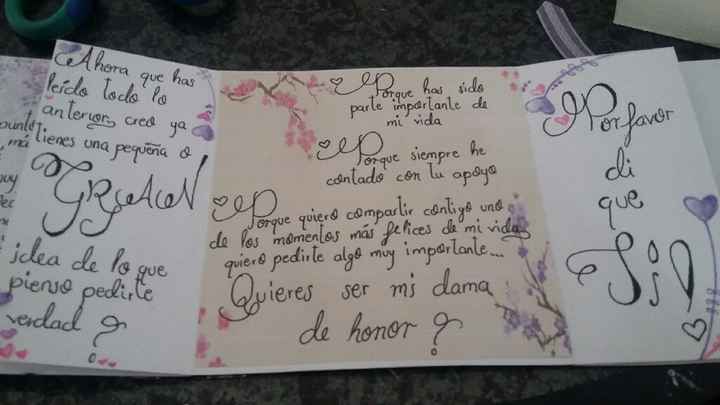 Ahora que has
leído todo lo
anterior, creo ya
tienes una pequeña o
GRAN
idea de lo que
pienso pedirte
verdad ?
Porque has sido
parte importante de
mi vida
Porque siempre he
contado con tu apoyo
Porque quiero compartir contigo uno
de los momentos más felices de mi vida
quiero pedirte algo muy importante...
Quieres ser mi dama
de honor ?
Por favor
di
que
Sí